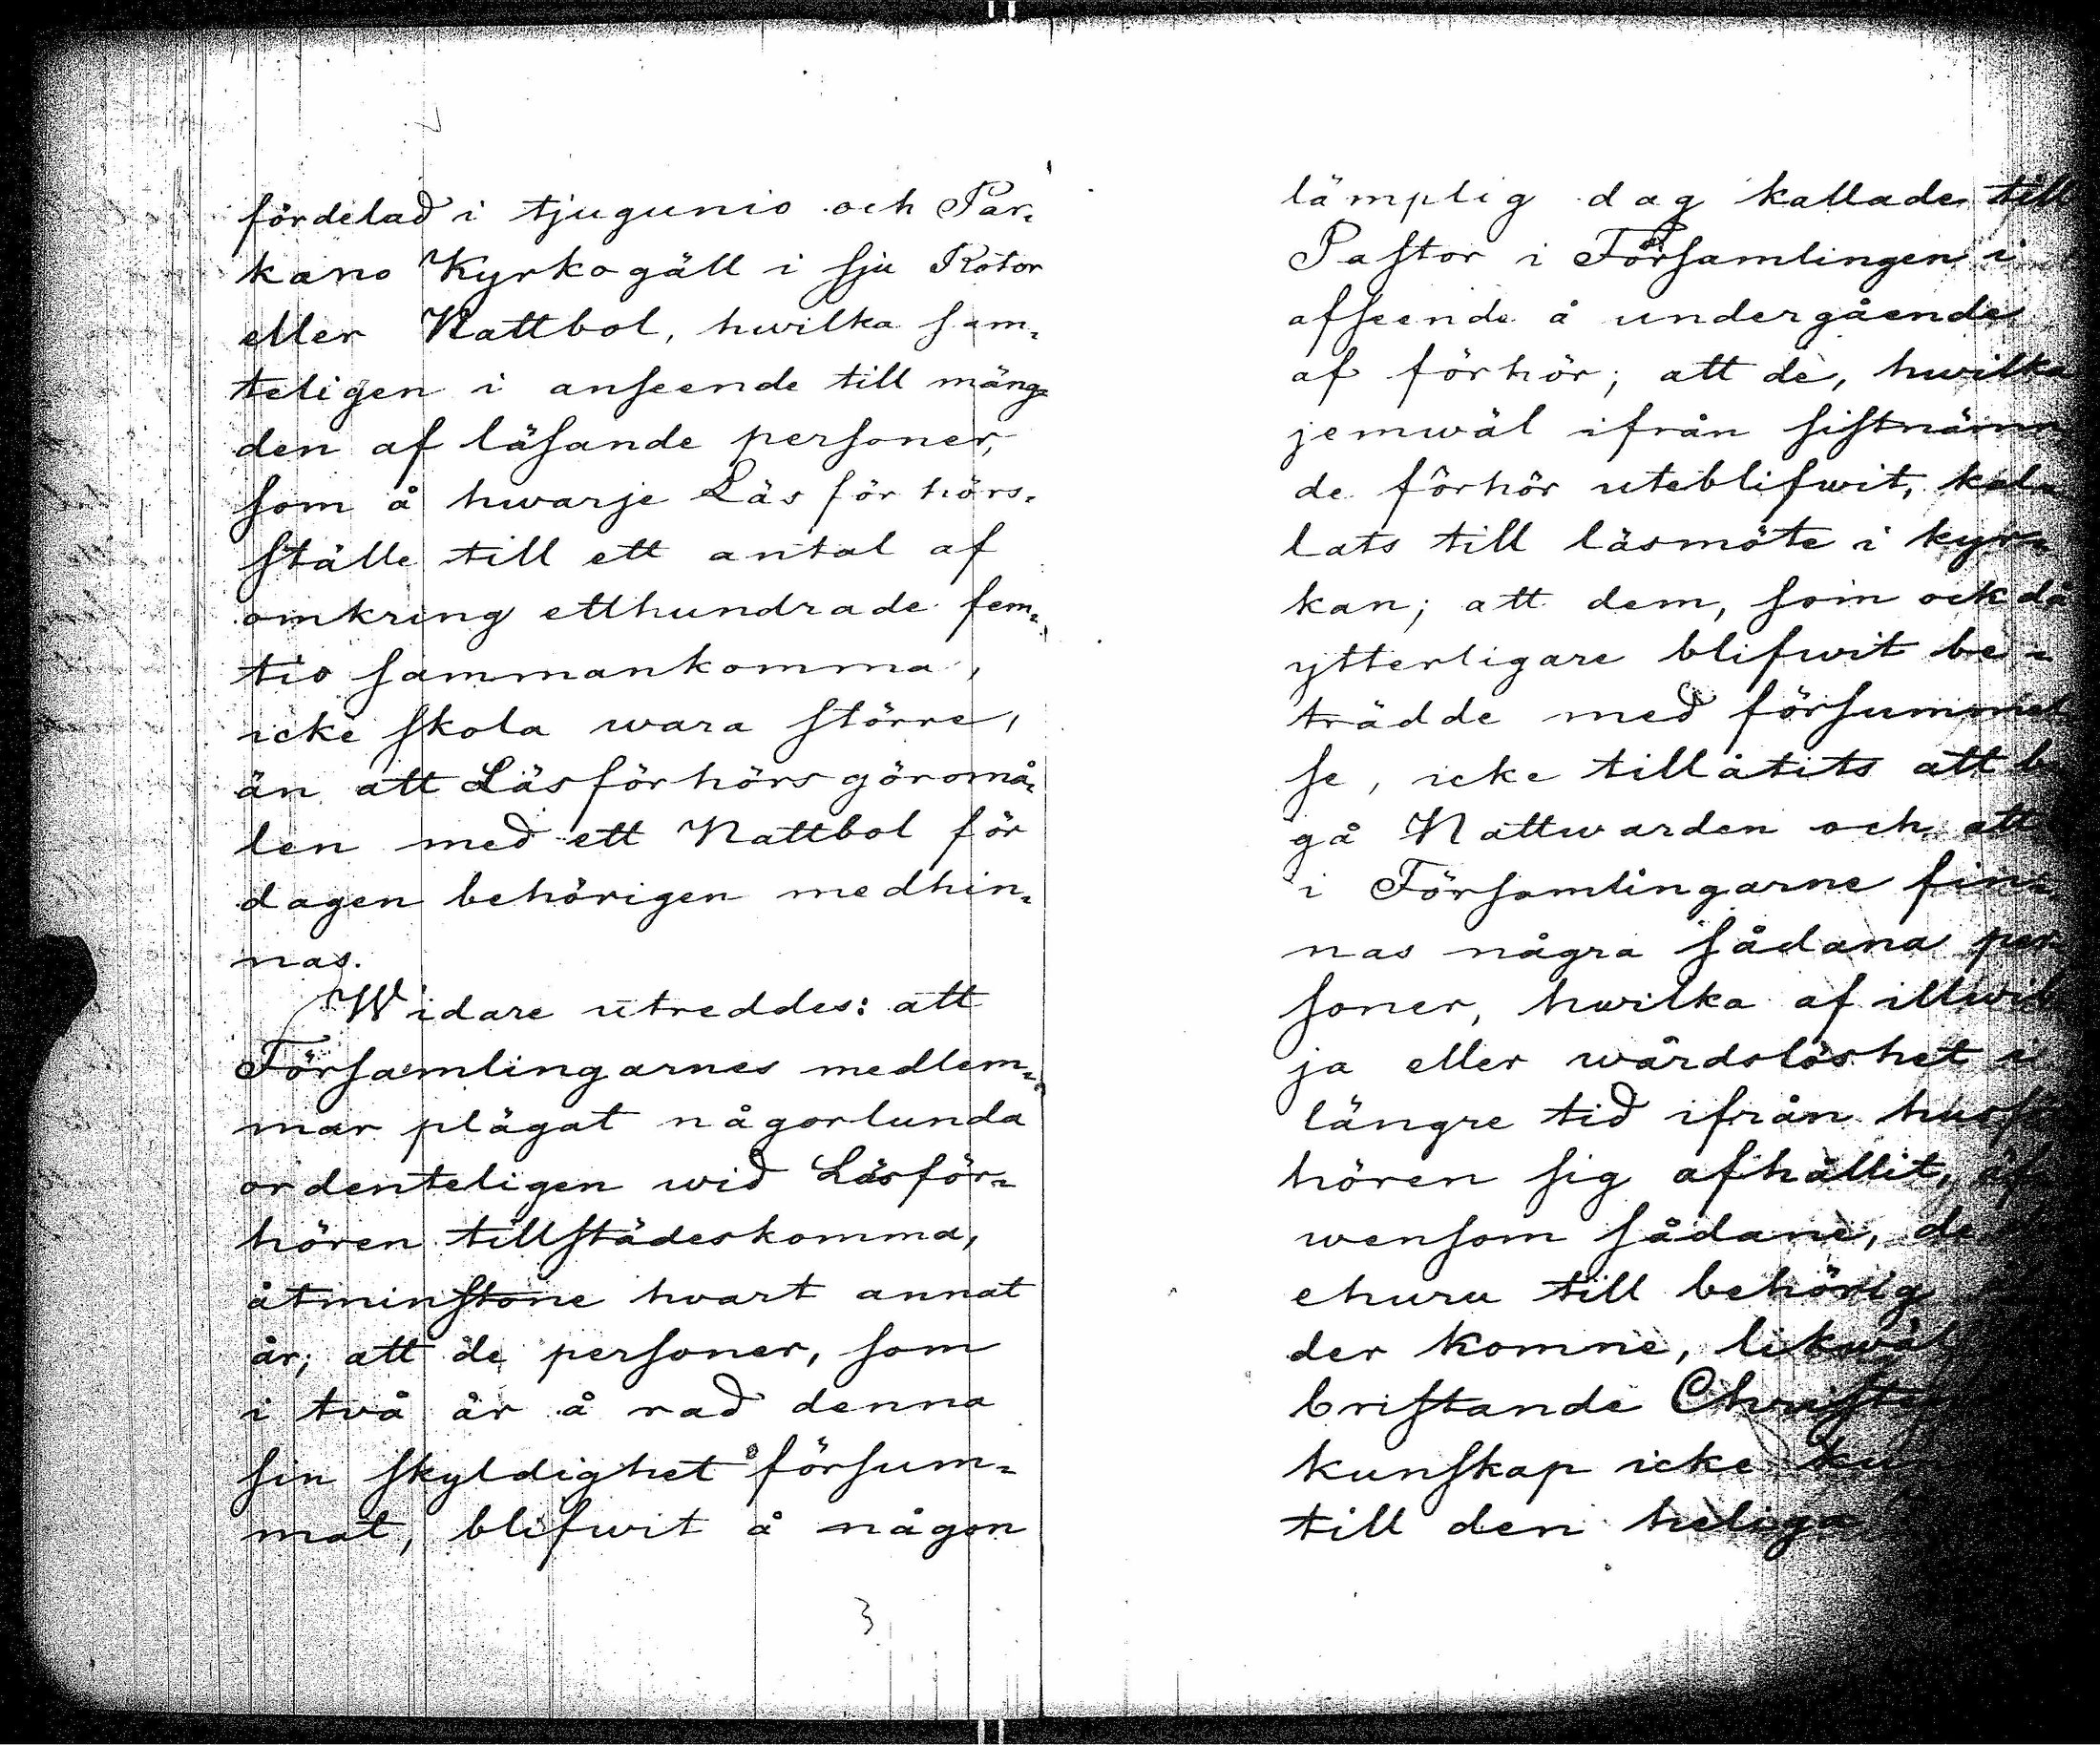 fördelad i tjugunio och Par-
kano Kyrkogäll i sju Rotor
eller Nattbol, hwilka sam-
teligen i anseende till mäng-
den af läsande personer,
som å hwarje Läsförhörs-
ställe till ett antal af
omkring etthundrade fem-
tio sammankomma,
icke skola wara större,
än att Läsförhörsgöromå-
len med ett Nattbol för
dagen behörigen medhin-
nas.
Widare utreddes: att
Församlingarnes medlem-
mar plägat någorlunda
ordenteligen wid Läsför-
hören tillstädeskomma,
åtminstone hvart annat
år; att de personer, som
i två år å rad denna
sin skyldighet försum-
mat, blifwit å någon
3
lämplig dag kallade till
Pastor i Församlingen i
afseende å undergående
af förhör; att de, hwilka
jemwäl ifrån sistnämn
de förhör uteblifwit, kal-
lats till läsmöte i kyr-
kan; att dem, som ock då
ytterligare blifwit be-
trädde med försummel
se, icke tillåtits att be
gå Nattwarden och att
i Församlingarne fin-
nas några sådana per
soner, hwilka af illwil
ja eller wårdslöshet i
längre tid ifrån husf
hören sig afhållit, äf
wensom sådane, de
ehuru till behörig
der komne, likwäl
bristande Christen
kunskap icke ku
till den heliga